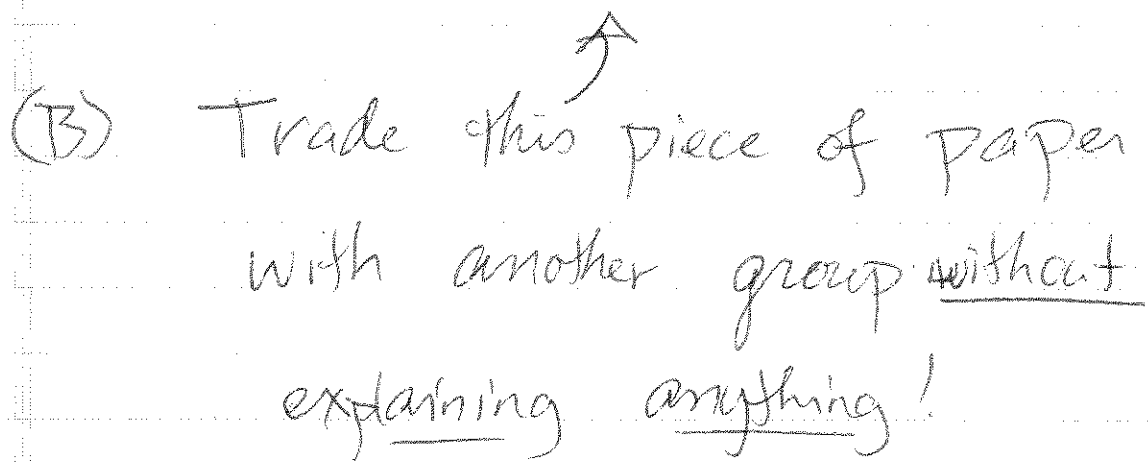 (B) Trade this piece of paper
with another group without
explaining anything!